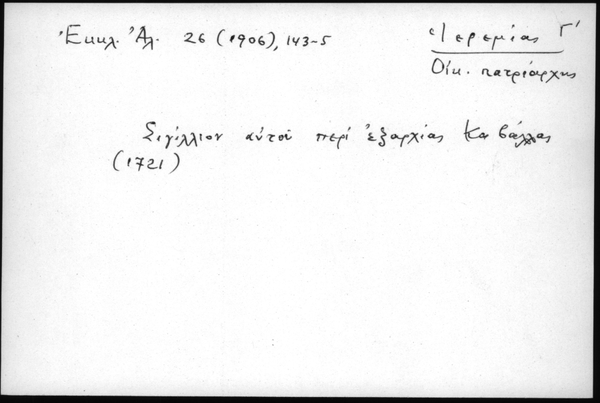 Ἐκκλ. Ἀλ. 26 (1906), 143-5
Ἱερεμίας Γ'
Οἰκ. πατριάρχης
Σιγίλλιον αὐτοῦ περί ἐξαρχίας Καβάλλας
(1721)